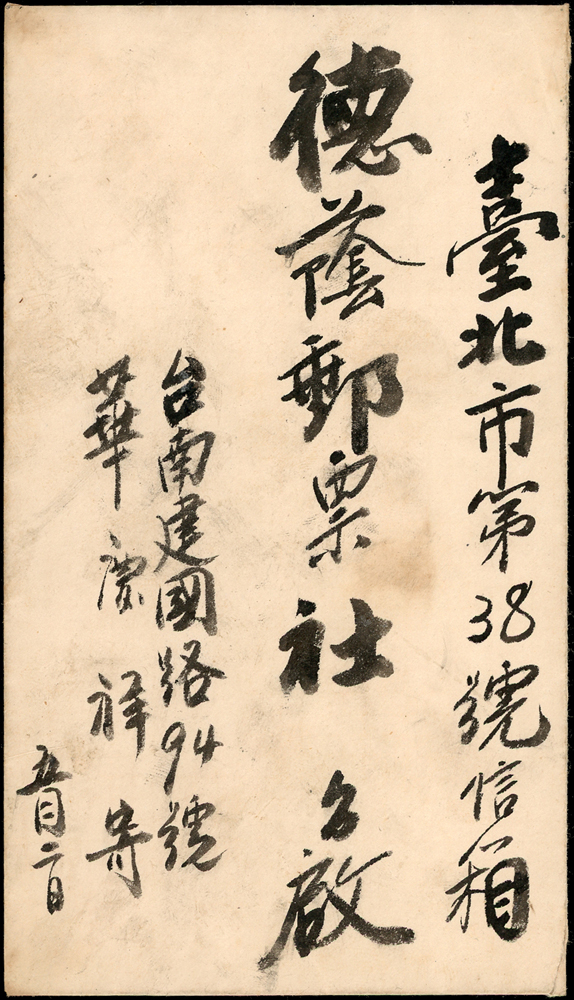 臺北市第38號信箱
德蔭郵票社 台啟
台南建國路94號
華慶祥寄
五月二日